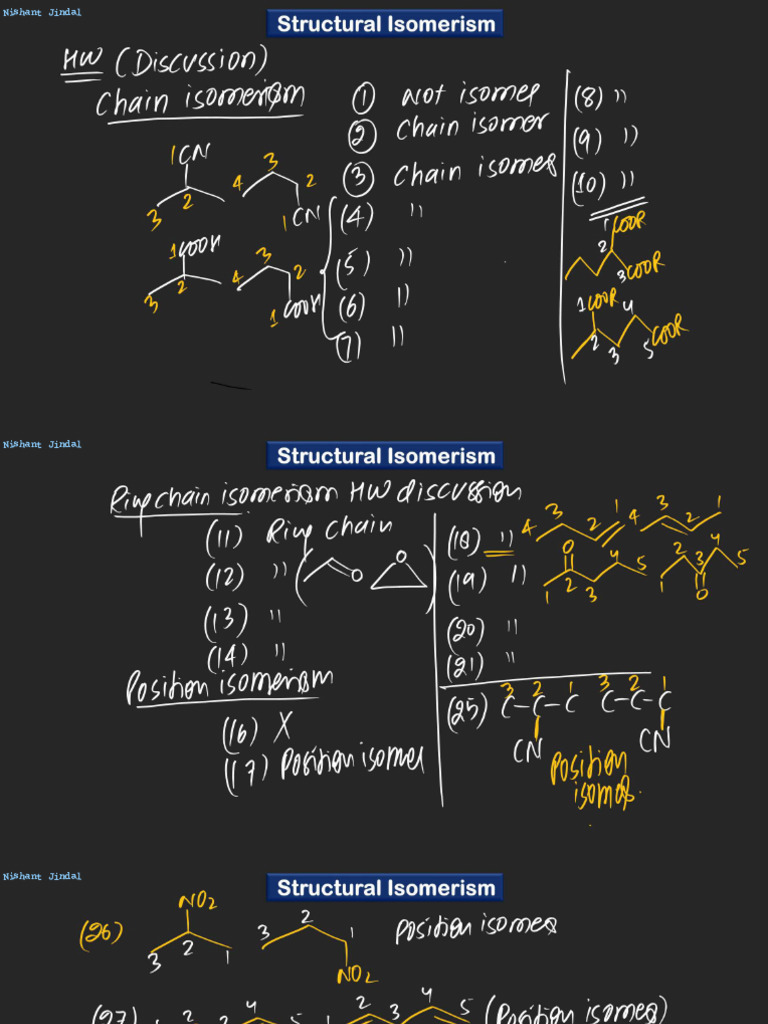 Nishant Jindal
Structural Isomerism
HW (Discussion)
Chain isomerism
1CN
2
3
4 3 2
1CN
1COOH
2
3
4 3 2
1COOH
① Not isomer
② Chain isomer
③ Chain isomer
(4) "
(5) "
(6) "
(7) "
(8) "
(9) "
(10) "
1COOR
2
3COOR
1COOR 4
2 3 5 COOR
Nishant Jindal
Structural Isomerism
Ring chain isomerism HW discussion
(11) Ring Chain
(12) " ( O O )
(13) "
(14) "
Position isomerism
(16) X
(17) Position isomer
(18) " 4 3 2 1 4 3 2 1
(19) " O 1 2 3 4 5 1 2 3 4 5 O
(20) "
(21) "
3 2 1 3 2 1
(25) C-C-C C-C-C
CN CN
Position
isomer.
Nishant Jindal
Structural Isomerism
NO2
(26) 3 2 1 3 2 1 Position isomer
NO2
(27) 1 2 4 5 1 2 3 4 5 (Position isomer)